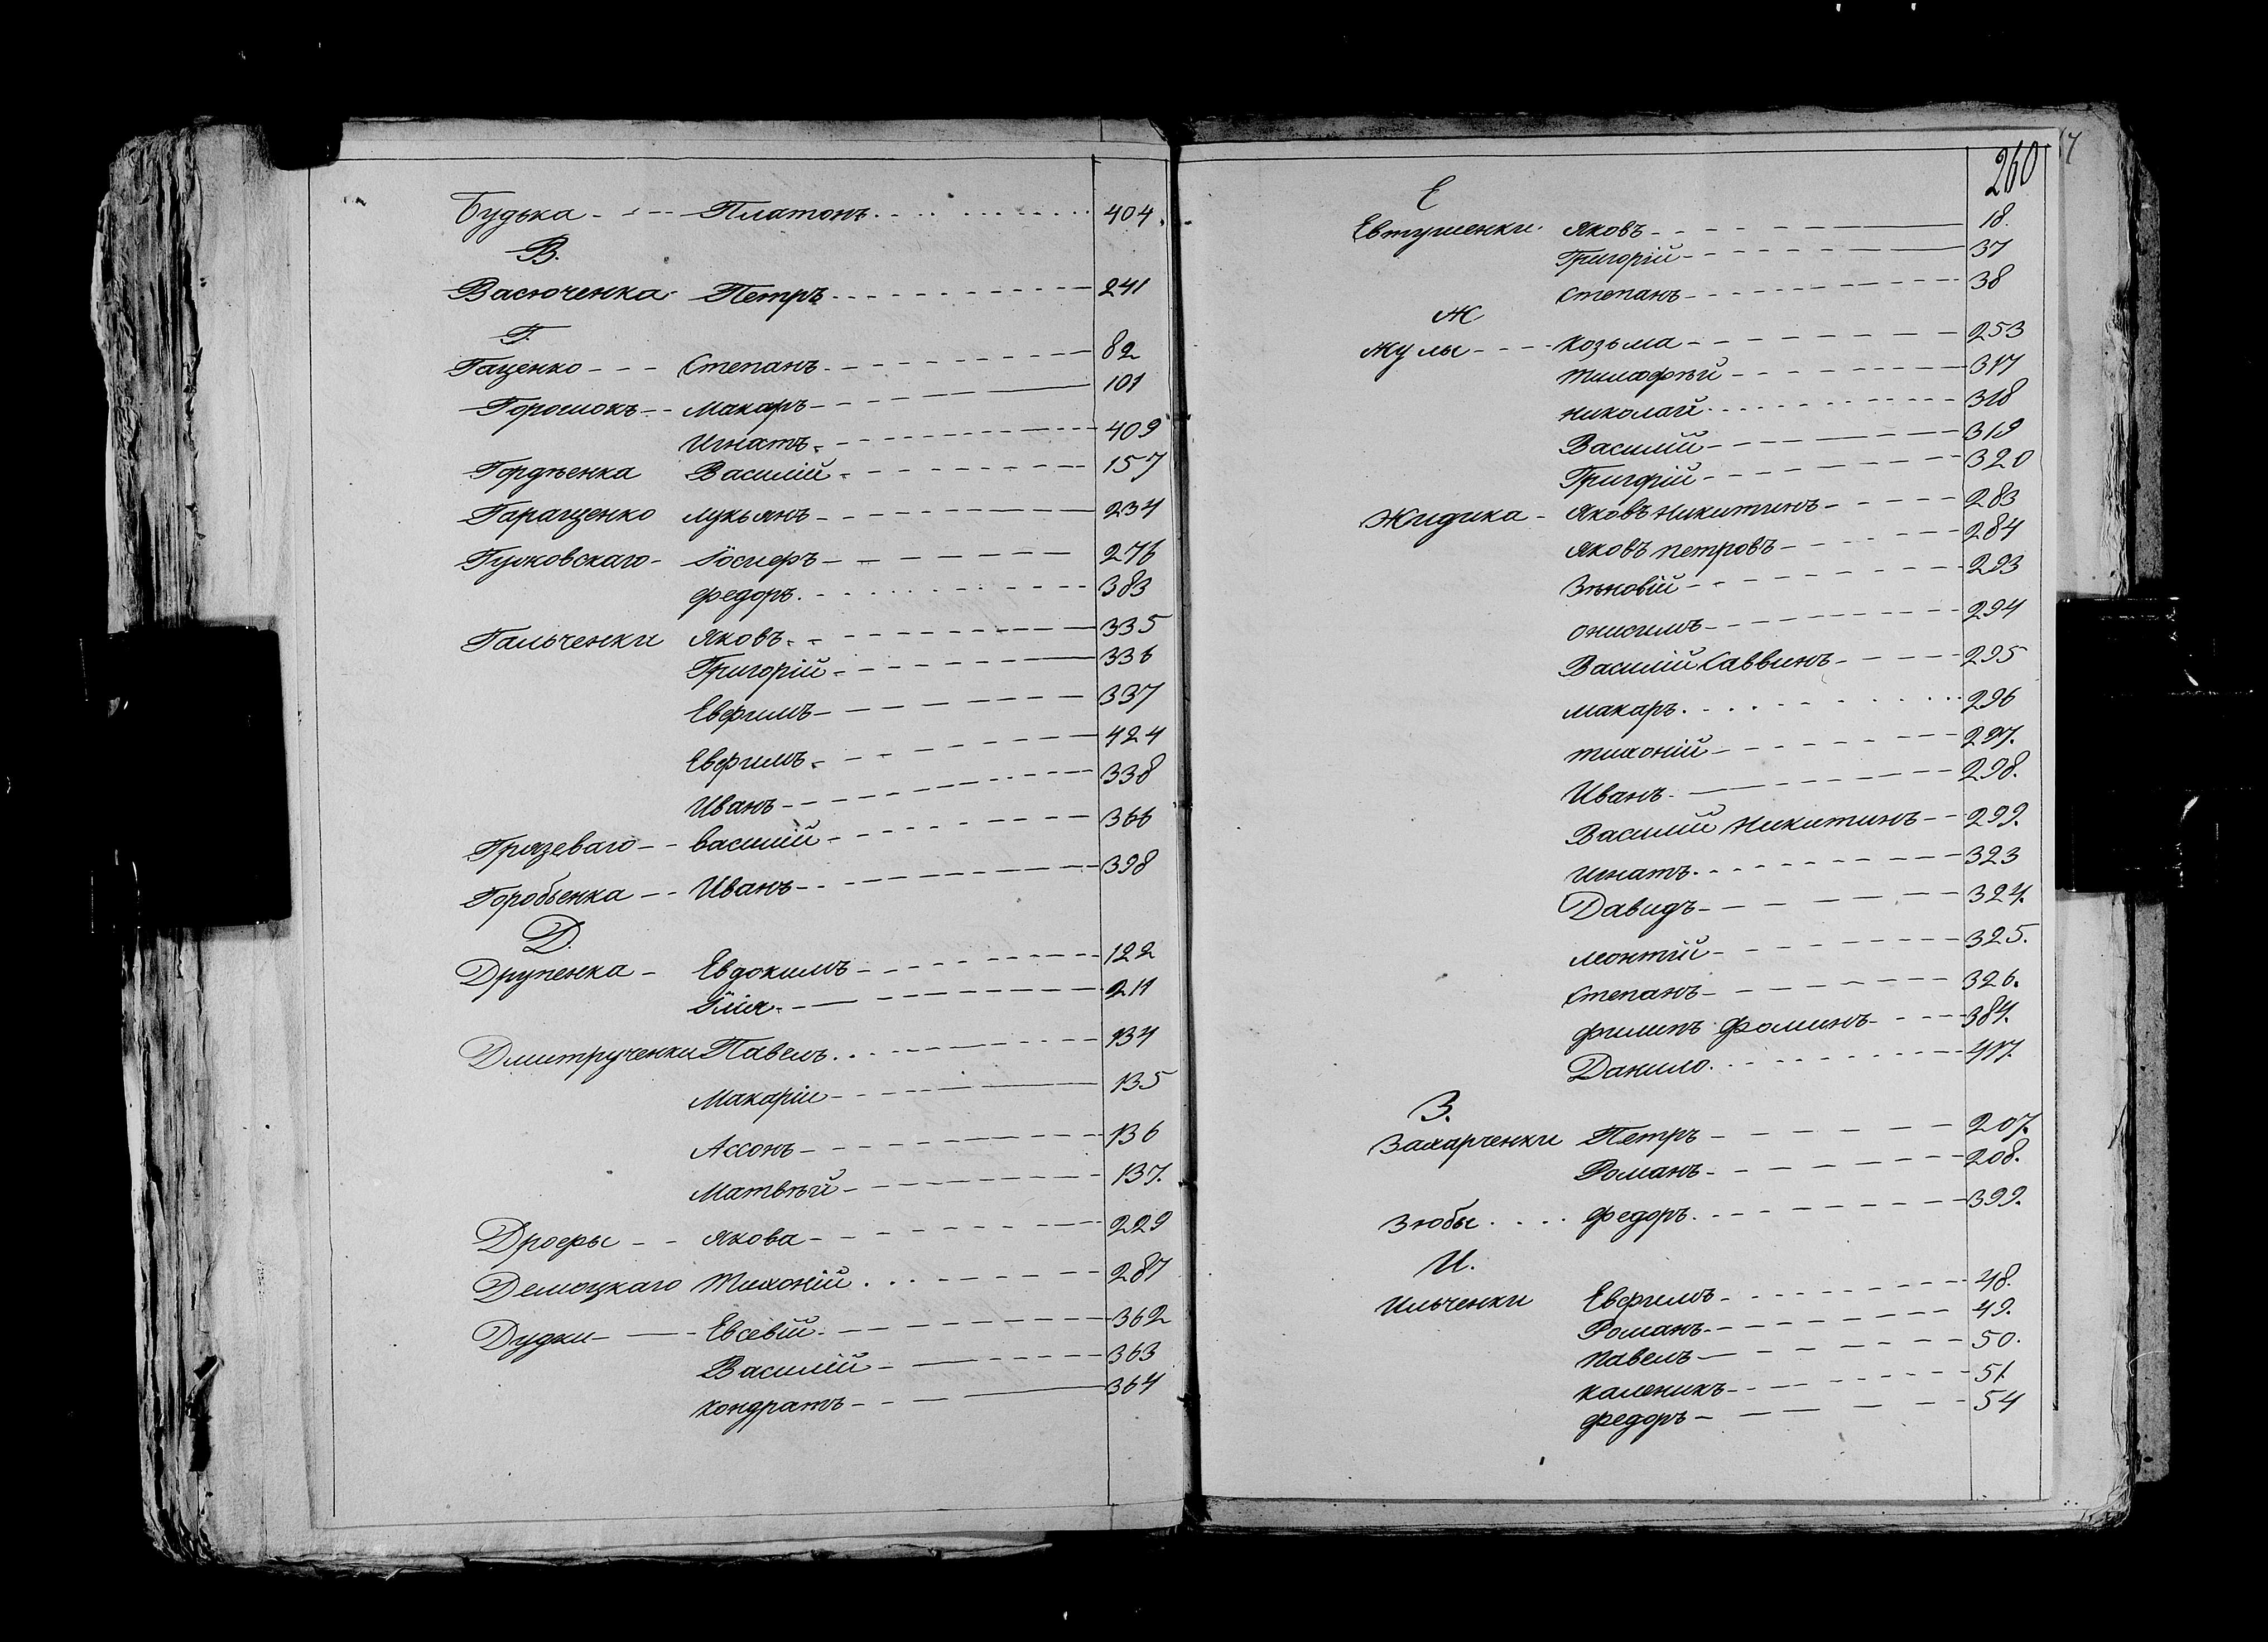 Будька Платонъ 404.
В.
Васюченка Петръ 241
Г.
Гаценко Степанъ 82
Горошокъ Макаръ 101
Игнатъ 409
Гордѣенка Василій 157
Гаращенко Лукьянъ 234
Гужовскаго Іосифъ 276
Федоръ 383
Гальченки Яковъ 335
Григорій 336
Евфимъ 337
Евфимъ 424
Иванъ 338
Грязеваго Василій 366
Горобьенка Иванъ 398
Д.
Друпенка Евдокимъ 122
Илія 211
Дмитрученки Павелъ 134
Макарій 135
Ассонъ 136
Матвѣй 137.
Дрофы Якова 229
Демоцкаго Тихоній 287
Дудки Евсевій 362
Василій 363
Кондратъ 364
260
Е
Евтушенки Яковъ 18.
Григорій 37
Степанъ 38
Ж
Жулы Козьма 253
Тимофѣй 317
Николай 318
Василій 319
Григорій 320
Жидика Яковъ Никитинъ 283
Яковъ Петровъ 284
Зѣновій 293
Онисимъ 294
Василій Саввинъ 295
Макаръ 296
Тихоній 297.
Иванъ 298.
Василій Никитинъ 299.
Игнатъ 323
Давидъ 324.
Леонтій 325.
Степанъ 326.
Филипъ Фоминъ 384.
Данило 417.
З.
Захарченки Петръ 207.
Романъ 208.
Зюбы Федоръ 399.
И.
Ильченки Евфимъ 48.
Романъ 49.
Павелъ 50.
Каленикъ 51
Федоръ 54